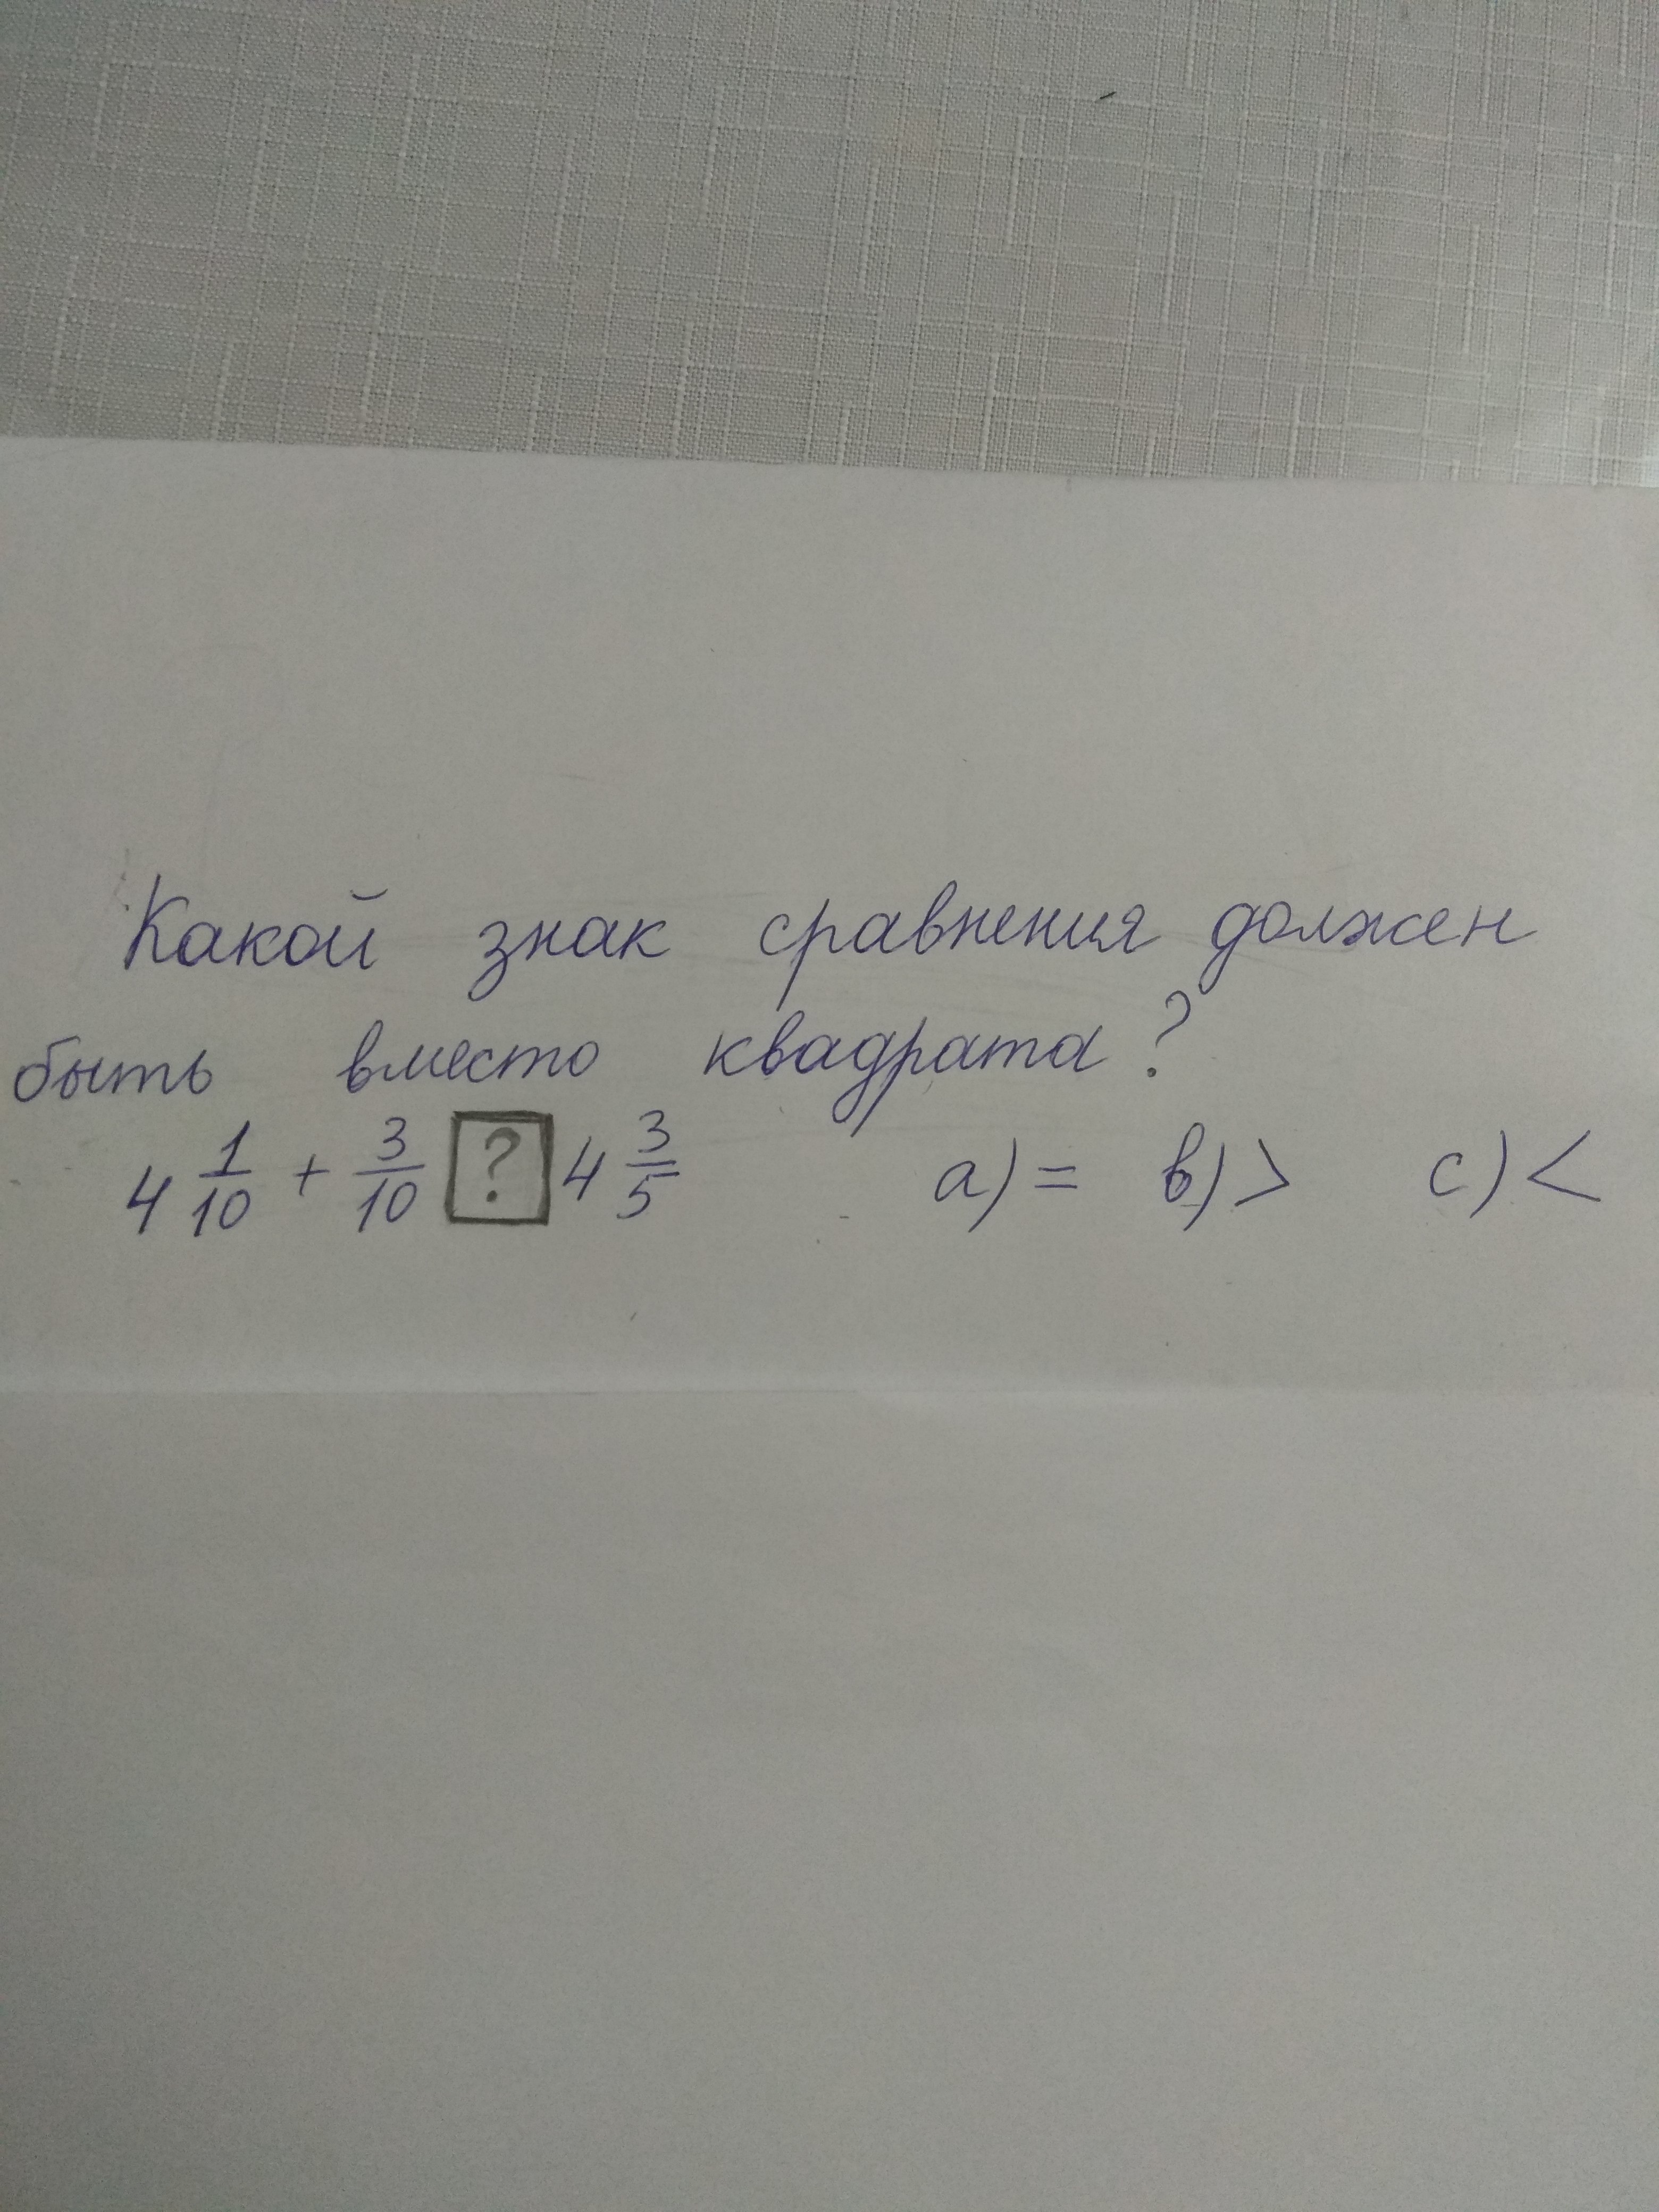 Какой знак сравнения должен
быть вместо квадрата?
4 1/10 + 3/10 ? 4 3/5 a) = в) > c) <